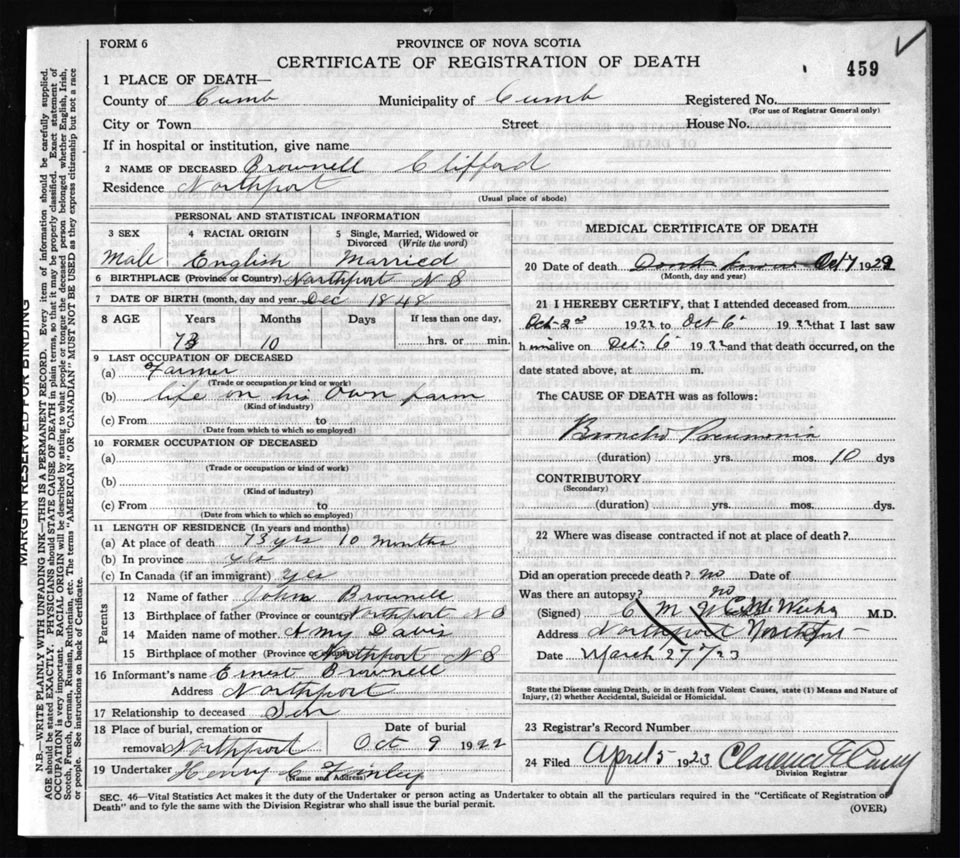 FORM 6
PROVINCE OF NOVA SCOTIA
CERTIFICATE OF REGISTRATION OF DEATH
459
1 PLACE OF DEATH—
County of Cumb Municipality of Cumb Registered No.
(For use of Registrar General only)
City or Town Street House No.
If in hospital or institution, give name
2 NAME OF DECEASED Brownell Clifford
Residence Northport
(Usual place of abode)
PERSONAL AND STATISTICAL INFORMATION
3 SEX 4 RACIAL ORIGIN 5 Single, Married, Widowed or Divorced (Write the word)
Male English Married
6 BIRTHPLACE (Province or Country) Northport N S
7 DATE OF BIRTH (month, day and year) Dec 1848
8 AGE Years Months Days If less than one day,
73 10 hrs. or min.
9 LAST OCCUPATION OF DECEASED
(a) Farmer
(Trade or occupation or kind of work)
(b) life on his own farm
(Kind of industry)
(c) From to
(Date from which to which so employed)
10 FORMER OCCUPATION OF DECEASED
(a)
(Trade or occupation or kind of work)
(b)
(Kind of industry)
(c) From to
(Date from which to which so employed)
11 LENGTH OF RESIDENCE (In years and months)
(a) At place of death 73 yrs 10 months
(b) In province yes
(c) In Canada (if an immigrant) yes
Parents
12 Name of father John Brownell
13 Birthplace of father (Province or country) Northport N S
14 Maiden name of mother Amy Davis
15 Birthplace of mother (Province or country) Northport N S
16 Informant's name Ernest Brownell
Address Northport
17 Relationship to deceased Son
18 Place of burial, cremation or removal Northport
Date of burial
Oct 9 1922
19 Undertaker Henry C Finley
(Name and Address)
MEDICAL CERTIFICATE OF DEATH
20 Date of death Dont know Oct 7 1922
(Month, day and year)
21 I HEREBY CERTIFY, that I attended deceased from
Oct 2nd 1922 to Oct 6 1922 that I last saw
him alive on Oct 6 1922 and that death occurred, on the
date stated above, at m.
The CAUSE OF DEATH was as follows:
Broncho Pneumonia
(duration) yrs. mos. 10 dys
CONTRIBUTORY
(Secondary)
(duration) yrs. mos. dys.
22 Where was disease contracted if not at place of death?
Did an operation precede death? no Date of
Was there an autopsy? no
(Signed) C M M.D.
Address Northport Northport
Date March 27/23
State the Disease causing Death, or in death from Violent Causes, state (1) Means and Nature of
Injury, (2) whether Accidental, Suicidal or Homicidal.
23 Registrar's Record Number
24 Filed April 5 1923 Clarence
Division Registrar
SEC. 46—Vital Statistics Act makes it the duty of the Undertaker or person acting as Undertaker to obtain all the particulars required in the "Certificate of Registration of
Death" and to fyle the same with the Division Registrar who shall issue the burial permit.
(OVER)
MARGIN RESERVED FOR BINDING
N.B.—WRITE PLAINLY WITH UNFADING INK—THIS IS A PERMANENT RECORD. Every item of information should be carefully supplied.
AGE should be stated EXACTLY. PHYSICIANS should STATE CAUSE OF DEATH in plain terms, so that it may be properly classified. Exact statement of
OCCUPATION is very important. RACIAL ORIGIN will be described by stating to what people or tongue the deceased person belonged, whether English, Irish,
Scotch, French, German, Russian, Ruthenian, etc. The terms "AMERICAN" OR "CANADIAN" MUST NOT BE USED as they express citizenship but not a race
or people. See instructions on back of Certificate.